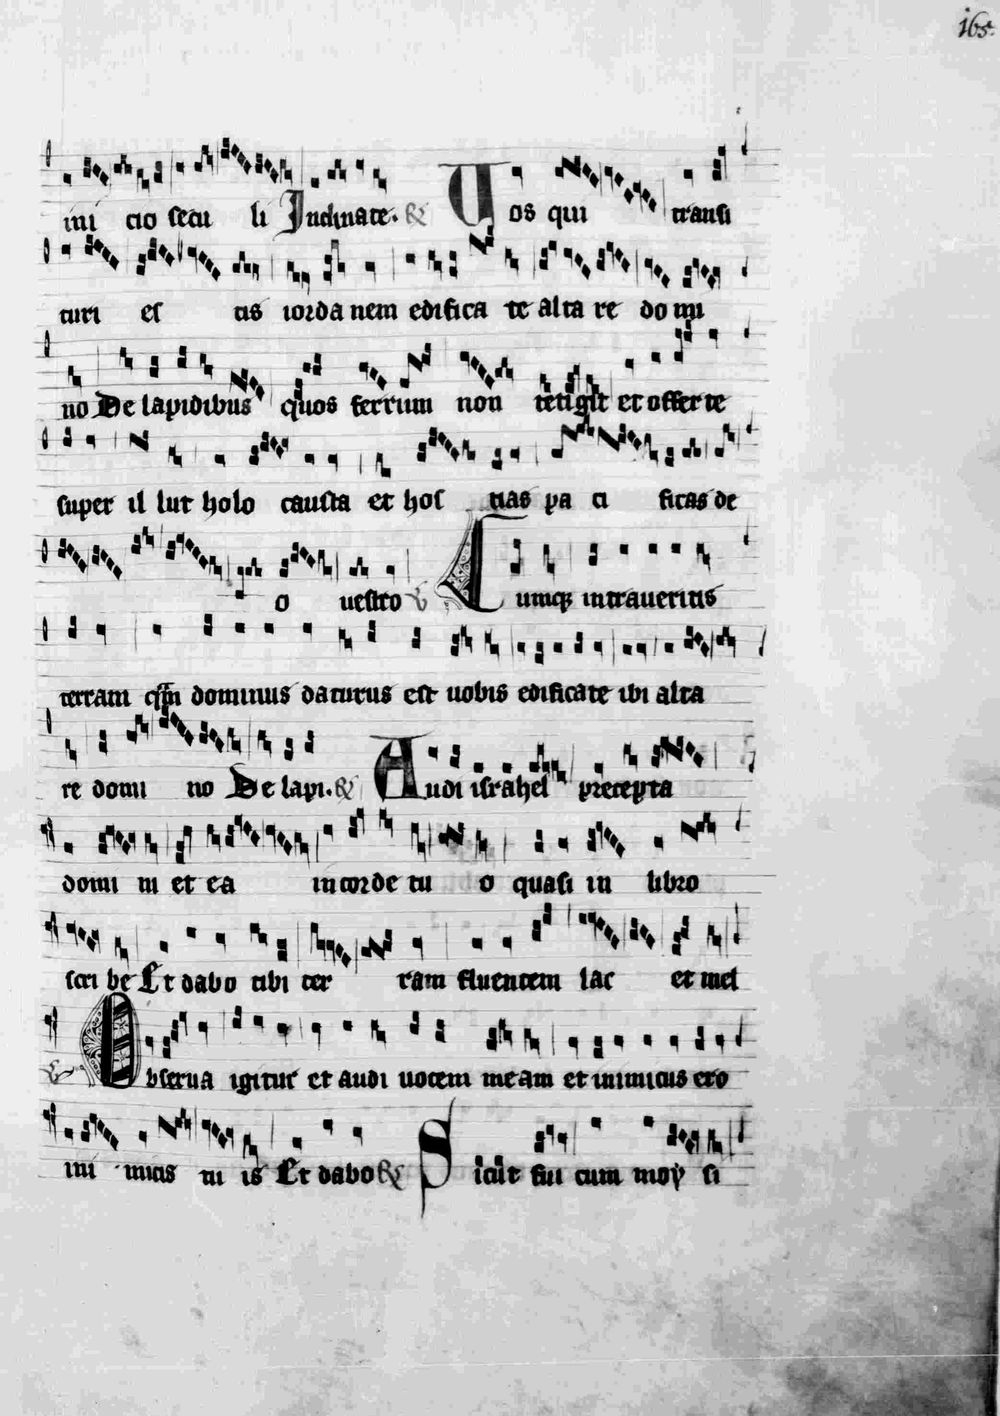 165.
ini cio secu li Inclinate. Vos qui transi
turi es tis iordanem edifica te alta re do mi
no De lapidibus quos ferrum non tetigit et offerte
super il lut holo causta et hos tias pa ci ficas de
o vestro Cumque intraveritis
terram quam dominus daturus est uobis edificate ibi alta
re domi no De lapi. Audi israhel precepta
domi ni et ea in corde tu o quasi in libro
scri be Et dabo tibi ter ram fluentem lac et mel
Observa igitur et audi uocem meam et inimicus ero
ini micis tu is Et dabo Sicut fui cum moy si